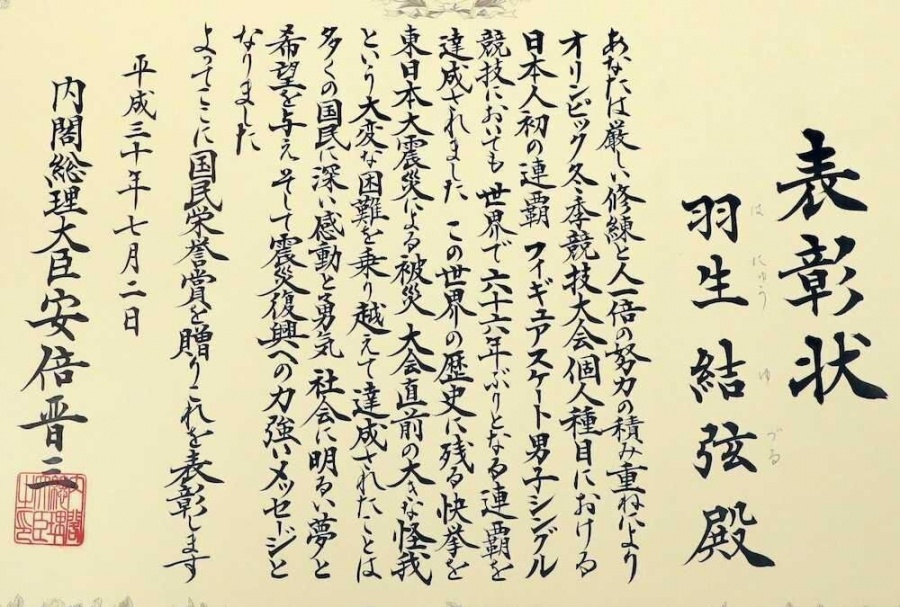 表彰状
はにゅう ゆづる
羽生結弦殿
あなたは厳しい修練と人一倍の努力の積み重ねにより
オリンピック冬季競技大会個人種目における
日本人初の連覇 フィギュアスケート男子シングル
競技においても 世界で六十六年ぶりとなる連覇を
達成されました この世界の歴史に残る快挙を
東日本大震災による被災 大会直前の大きな怪我
という大変な困難を乗り越えて達成されたことは
多くの国民に深い感動と勇気 社会に明るい夢と
希望を与え そして震災復興への力強いメッセージと
なりました
よってここに国民栄誉賞を贈りこれを表彰します
平成三十年七月二日
内閣総理大臣 安倍晋三